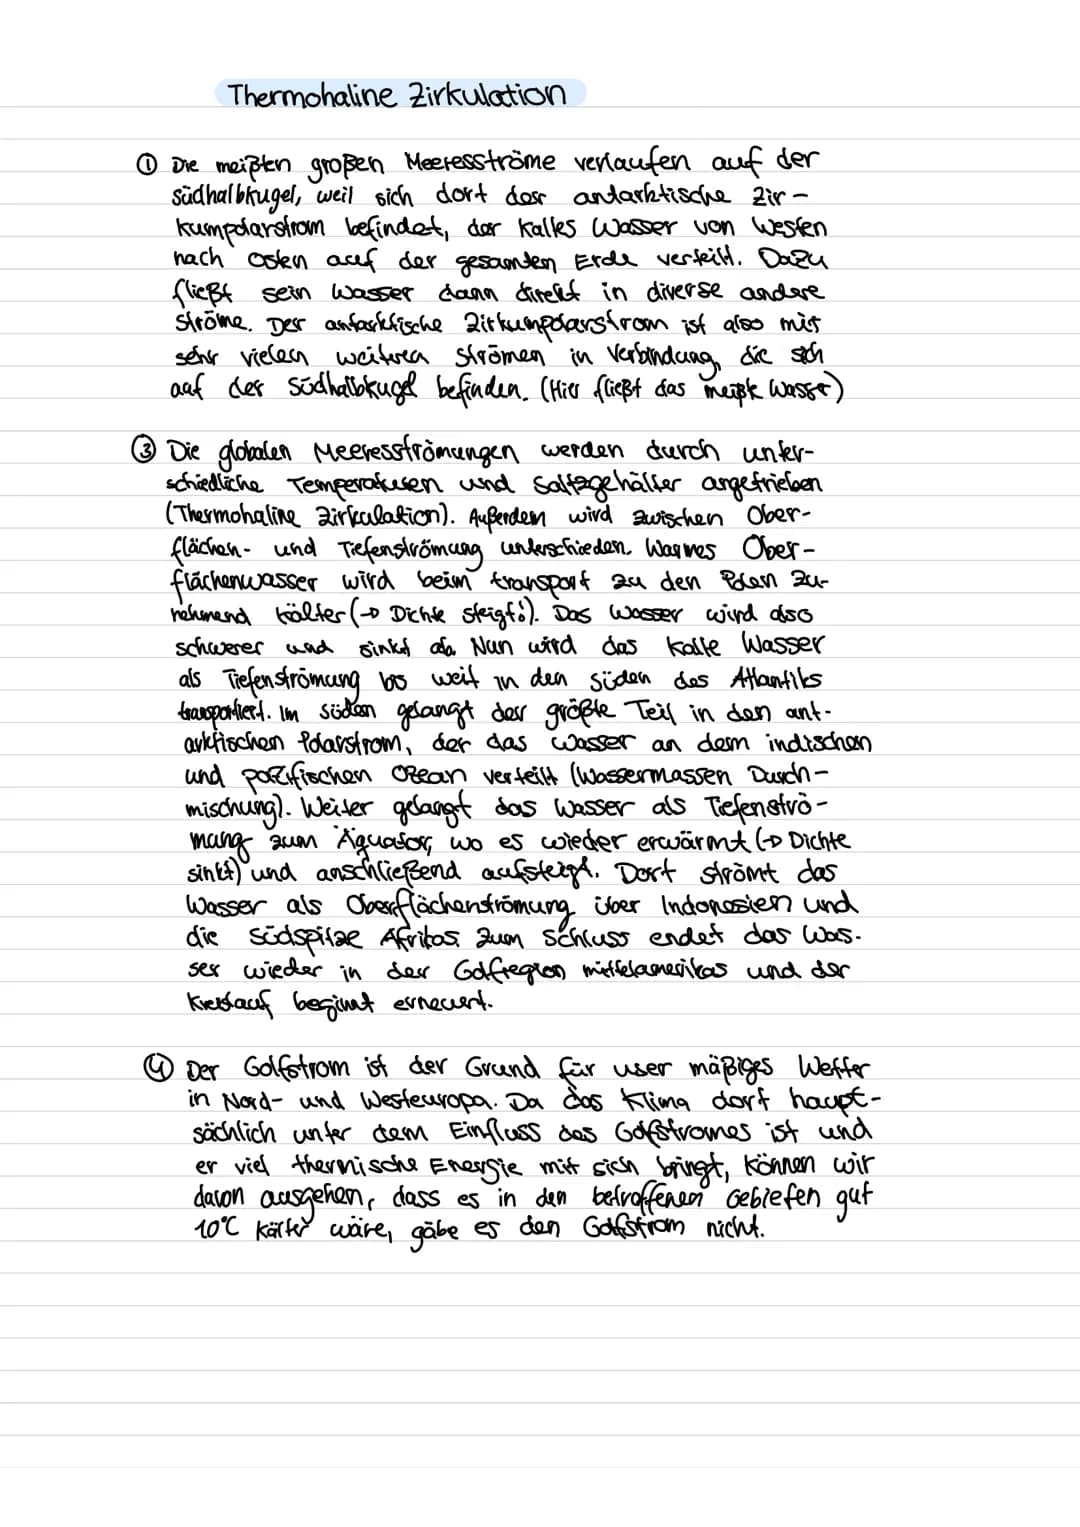 Thermohaline Zirkulation
① Die meißten großen Meeresströme verlaufen auf der
südhalbkugel, weil sich dort der antarktische Zir-
kumpolarstrom befindet, der kaltes Wasser von Westen
nach Osten auf der gesamten Erde verteilt. Dazu
fließt sein Wasser dann direkt in diverse andere
Ströme. Der antarktische Zirkumpolarstrom ist also mit
sehr vielen weiteren Strömen in Verbindung, die sich
auf der Südhalbkugel befinden. (Hier fließt das meißte Wasser)
③ Die globalen Meeresströmungen werden durch unter-
schiedliche Temperaturen und Saltzgehälter angetrieben
(Thermohaline Zirkulation). Außerdem wird zwischen Ober-
flächen- und Tiefenströmung unterschieden. Warmes Ober-
flächenwasser wird beim transport zu den Polen zu-
nehmend kälter (→ Dichte steigt!). Das Wasser wird also
schwerer und sinkt ab. Nun wird das kalte Wasser
als Tiefenströmung bis weit in den Süden des Atlantiks
transportiert. Im Süden gelangt der größte Teil in den ant-
arktischen Polarstrom, der das Wasser an dem indischen
und pazifischen Ozean verteilt (Wassermassen Durch-
mischung). Weiter gelangt das Wasser als Tiefenströ-
mung zum Äquator, wo es wieder erwärmt (→ Dichte
sinkt) und anschließend aufsteigt. Dort strömt das
Wasser als Oberflächenströmung über Indonesien und
die Südspitze Afrikas. Zum Schluss endet das Was-
ser wieder in der Golfregion mittelamerikas und der
Kreislauf beginnt erneuert.
④ Der Golfstrom ist der Grund für user mäßiges Wetter
in Nord- und Westeuropa. Da das Klima dort haupt-
sächlich unter dem Einfluss des Golfstromes ist und
er viel thermische Energie mit sich bringt, können wir
davon ausgehen, dass es in den betroffenen Gebieten gut
10°C kälter wäre, gäbe es den Golfstrom nicht.